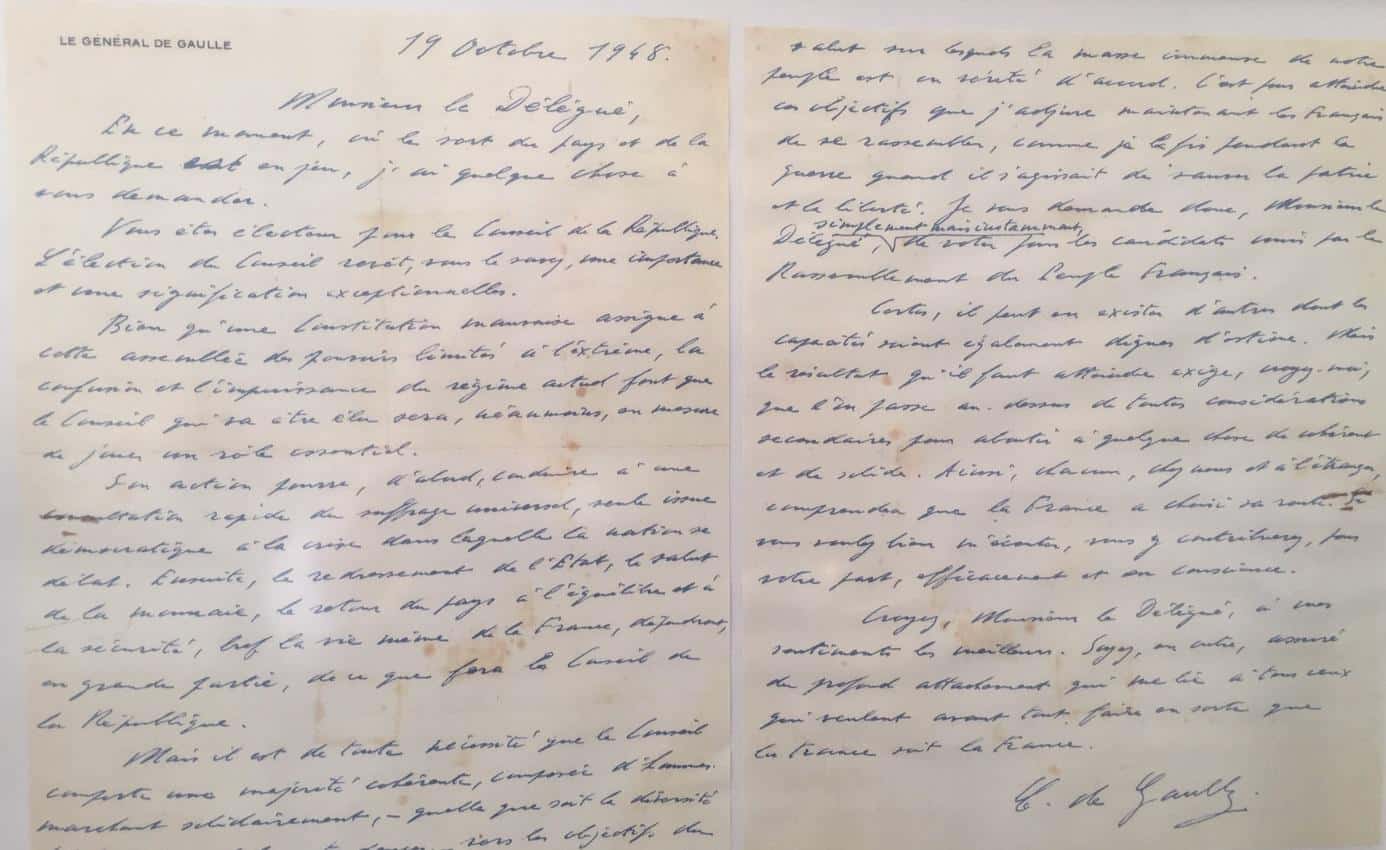 LE GÉNÉRAL DE GAULLE
19 Octobre 1948.
Monsieur le Délégué,
En ce moment, où le sort du pays et de la
République est en jeu, j'ai quelque chose à
vous demander.
Vous êtes électeur pour le Conseil de la République.
L'élection du Conseil revêt, vous le savez, une importance
et une signification exceptionnelles.
Bien qu'une Constitution mauvaise assigne à
cette assemblée des pouvoirs limités à l'extrême, la
confusion et l'impuissance du régime actuel font que
le Conseil qui va être élu sera, néanmoins, en mesure
de jouer un rôle essentiel.
Son action pourra, d'abord, conduire à une
consultation rapide du suffrage universel, seule issue
démocratique à la crise dans laquelle la nation se
débat. Ensuite, le redressement de l'Etat, le salut
de la monnaie, le retour du pays à l'équilibre et à
la sécurité, bref la vie même de la France, dépendront,
en grande partie, de ce que fera le Conseil de
la République.
Mais il est de toute nécessité que le Conseil
comporte une majorité cohérente, composée d'hommes
marchant solidairement, - quelle que soit la diversité
vers les objectifs du
salut sur lesquels la masse immense de notre
peuple est en vérité d'accord. C'est pour atteindre
ces objectifs que j'adjure maintenant les Français
de se rassembler, comme je le fis pendant la
guerre quand il s'agissait de sauver la patrie
et la liberté. Je vous demande donc, Monsieur le
simplement mais instamment,
Délégué, de voter pour les candidats unis par le
Rassemblement du Peuple Français.
Certes, il peut en exister d'autres dont les
capacités soient également dignes d'estime. Mais
le résultat qu'il faut atteindre exige, croyez-moi,
que l'on passe au-dessus de toutes considérations
secondaires pour aboutir à quelque chose de cohérent
et de solide. Ainsi, chacun, chez nous et à l'étranger,
comprendra que la France a choisi sa route. Si
vous voulez bien m'écouter, vous y contribuerez, pour
votre part, efficacement et en conscience.
Croyez, Monsieur le Délégué, à mes
sentiments les meilleurs. Soyez, en outre, assuré
du profond attachement qui me lie à tous ceux
qui veulent avant tout faire en sorte que
la France soit la France.
C. de Gaulle.